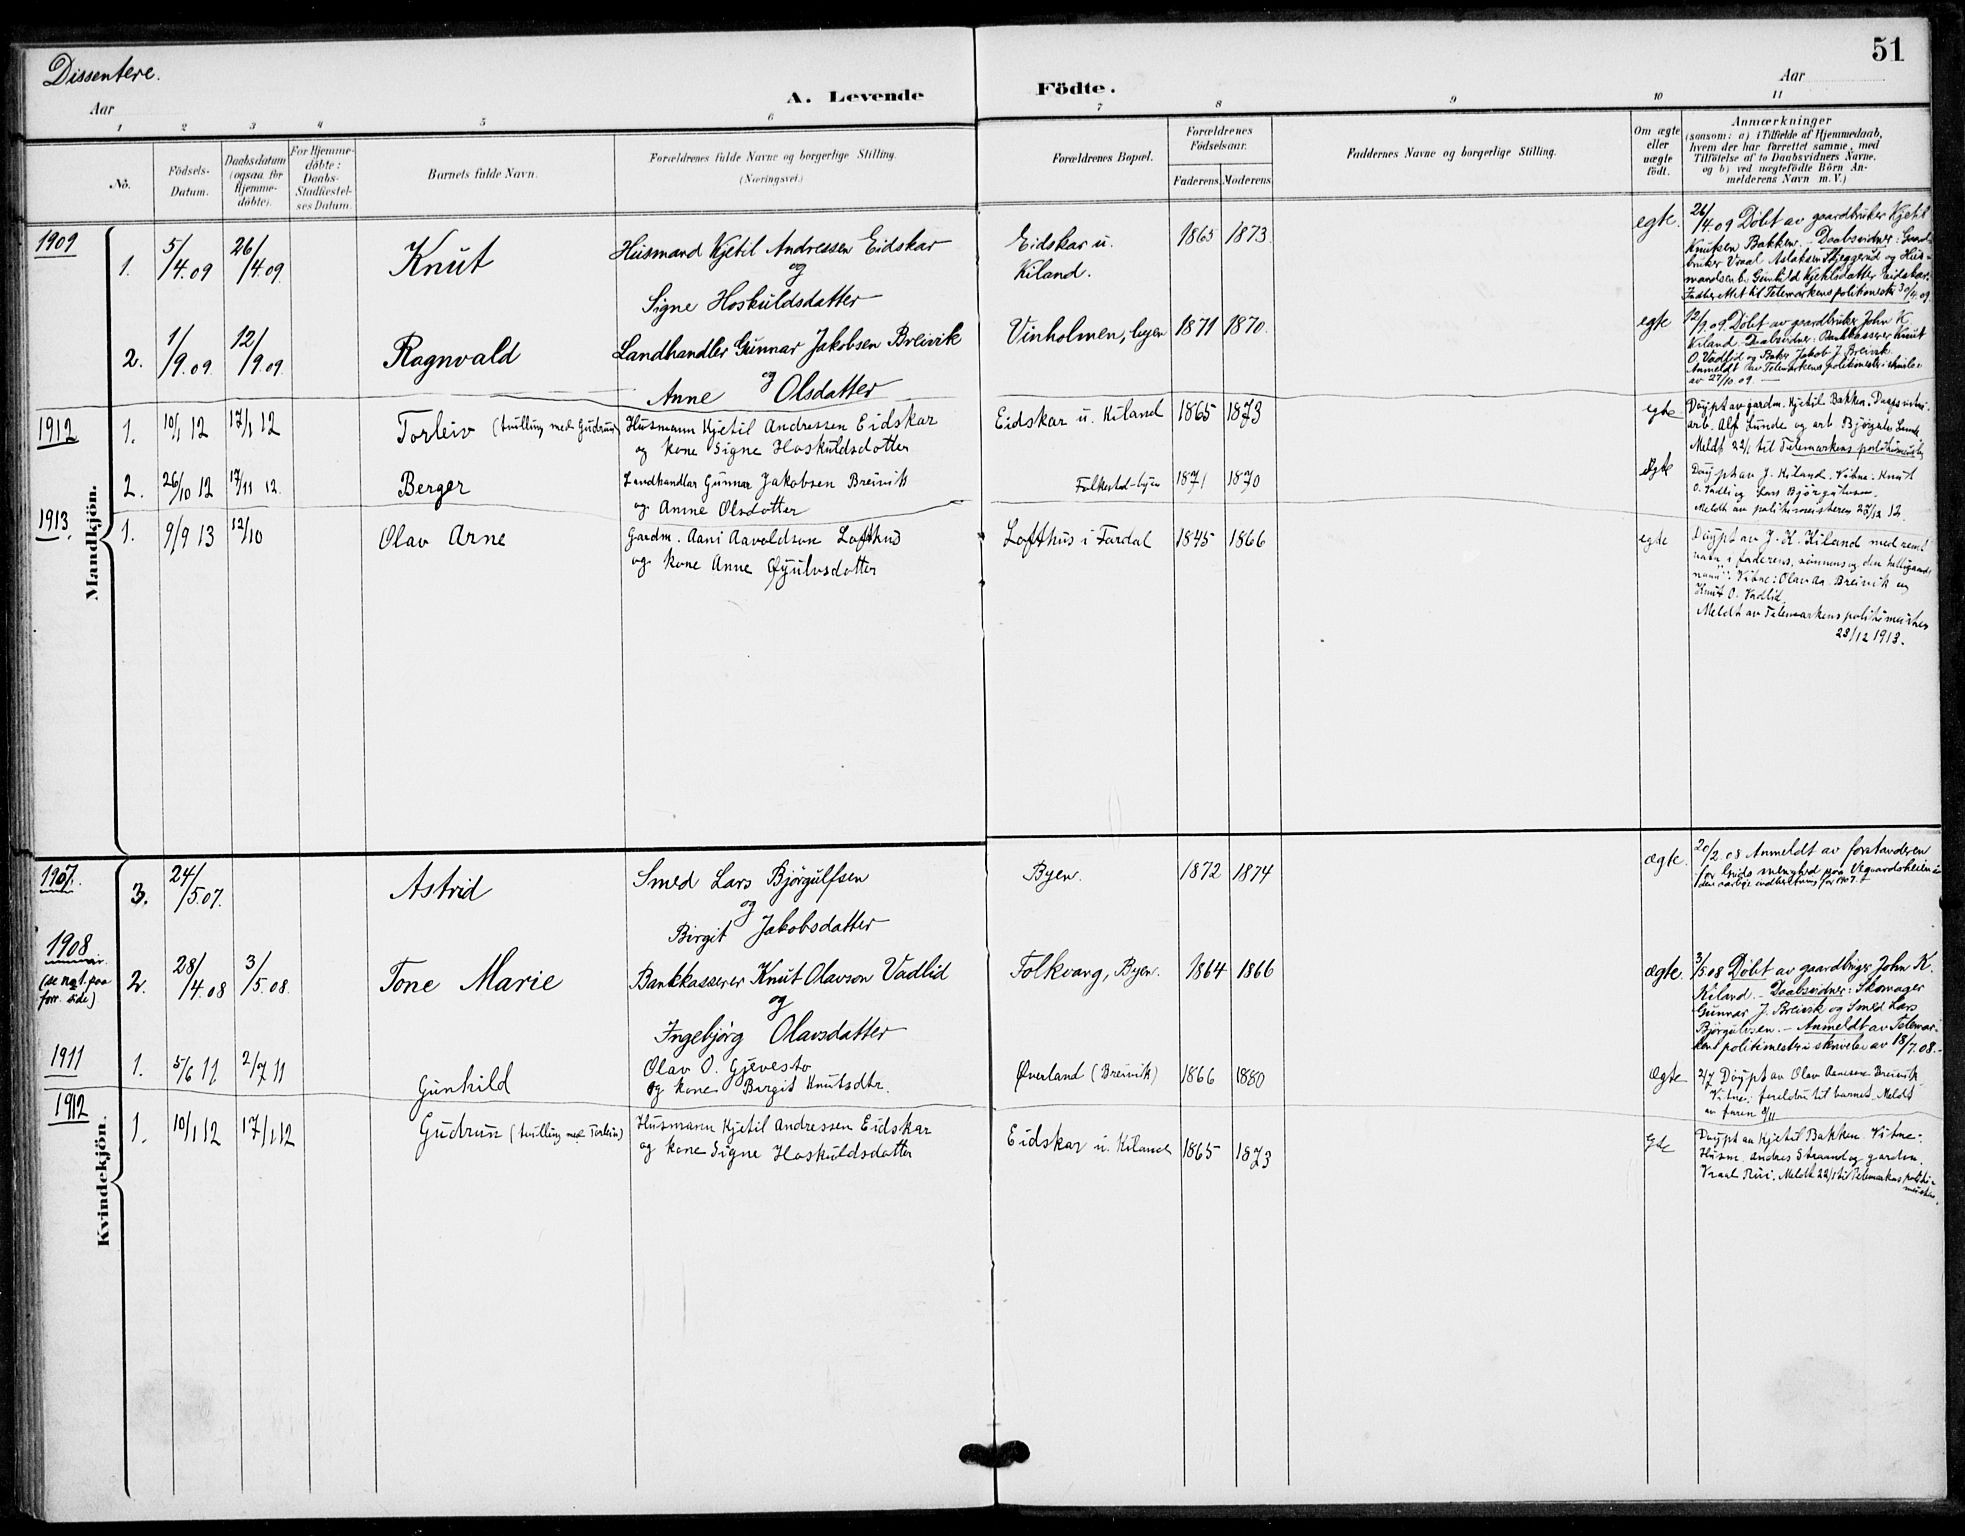 Dissentere.
51
Aar
A. Levende Födte.
Aar
1 2 3 4 5 6 7 8 9 10 11
No.
Födsels-
Datum.
Daabsdatum
(ogsaa for
Hjemme-
döbte).
For Hjemme-
döbte:
Daabs-
Stadfæstel-
ses Datum.
Barnets fulde Navn.
Forældrenes fulde Navne og borgerlige Stilling.
(Næringsvei.)
Forældrenes Bopæl.
Forældrenes
Födselsaar.
Faderens. Moderens.
Faddernes Navne og borgerlige Stilling.
Om ægte
eller
uægte
födt.
Anmærkninger
(saasom: a) i Tilfælde af Hjemmedaab,
hvem der har forrettet samme, med
Tilföielse af to Daabsvidners Navne,
og b) ved uægtefödte Börn An-
melderens Navn m. V.)
Mandkjön.
1909
1. 5/4.09 26/4.09. Knut
Husmand Kjetil Andressen Eidskar
og
Signe Hoskuldsdatter
Eidskar u.
Kiland.
1865 1873.
egte.
26/4.09 Döbt av gaardbruker Kjetil
Knutsen Bakken. - Daabsvidner: Gaard-
bruker Vraal Aslaksen Skjeggerud og
Gunhild Kjetilsdatter Eidskar.
Indberettet til Telemarkens politimester 30/4.09
2. 1/9.09. 12/9.09. Ragnvald
Landhandler Gunnar Jakobsen Breivik
og
Anne Olsdatter
Vinholmen, byen
1871 1870.
egte
12/9.09. Döbt av gaardbruker John K.
Kiland. Daabsvidner: Bankkasserer Knut
O. Vadlid og Baker Jakob J. Breivik.
Anmeldt av Telemarkens politimester
av 27/10 09. —
1912
1. 10/1 12 17/1 12 Torleiv (tvilling med Gudrun)
Husmann Kjetil Andressen Eidskar
og kone Signe Hoskuldsdotter
Eidskar u. Kiland
1865 1873
egte
Döypt av gardm. Kjetil Bakken.
arb. Alf Lunde og arb. Björgulv Lunde
Meldt 22/1 til Telemarkens politimeister
2. 26/10 12 17/11 12. Berger
Landhandlar Gunnar Jakobsen Breivik
og Anne Olsdotter
Folkestad-byen
1871 1870
Egte
Döypt av J. Kiland. Vitne: Knut
O. Vadli og Lars Björgulvson.
Meldt av politimeisteren 23/12 12.
1913.
1. 9/9 13 12/10 Olav Arne
Gardm. Aani Aavoldson Lofthus
og kone Anne Öyulvsdotter
Lofthus i Fardal
1845 1866
egte
Döypt av J. K. Kiland med
navn i faderens, sönnens og den helligaands
navn. Vitne: Olav Aa. Breivik og
Knut O. Vadlid.
Meldt av Telemarkens politimeister
23/12 1913.
Kvindekjön.
1907.
3. 24/5.07. Astrid
Smed Lars Björgulfsen
og
Birgit Jakobsdatter
Byen.
1872 1874
ægte.
20/2.08 Anmeldt av forstanderen
for Guds menighed paa Vegaardsheien i
den aarlige indberetning for 1907.
1908
(se no 1. paa
forr. side)
2. 28/4.08 3/5.08. Tone Marie
Bankkasserer Knut Olavson Vadlid
og
Ingebjörg Olavsdatter
Folkvang, Byen.
1864 1866
ægte.
3/5.08 Döbt av gaardbruger John K.
Kiland. - Daabsvidner: Skomager
Gunnar J. Breivik og Smed Lars
Björgulvsen. - Anmeldt av Telemar-
kens politimester i skrivelse av 18/7.08. -
1911
1. 5/6 11 2/7 11 Gunhild
Olav O. Gjevesto
og kone Birgit Knutsdtr.
Øverland (Breivik)
1866 1880
Ægte
2/7 Döypt av Olav Aanesen Breivik
Vitne: foreldre til barnet. Meldt
av faren
1912
1. 10/1 12 17/1 12 Gudrun (tvilling med Torleiv)
Husmann Kjetil Andressen Eidskar
og kone Signe Hoskuldsdotter
Eidskar u. Kiland
1865 1873
Döypt av Kjetil Bakken. Vitne:
Husm. Andres Straand og gardm.
Vraal Rui. Meldt 22/1 til Telemarkens politi-
meister.